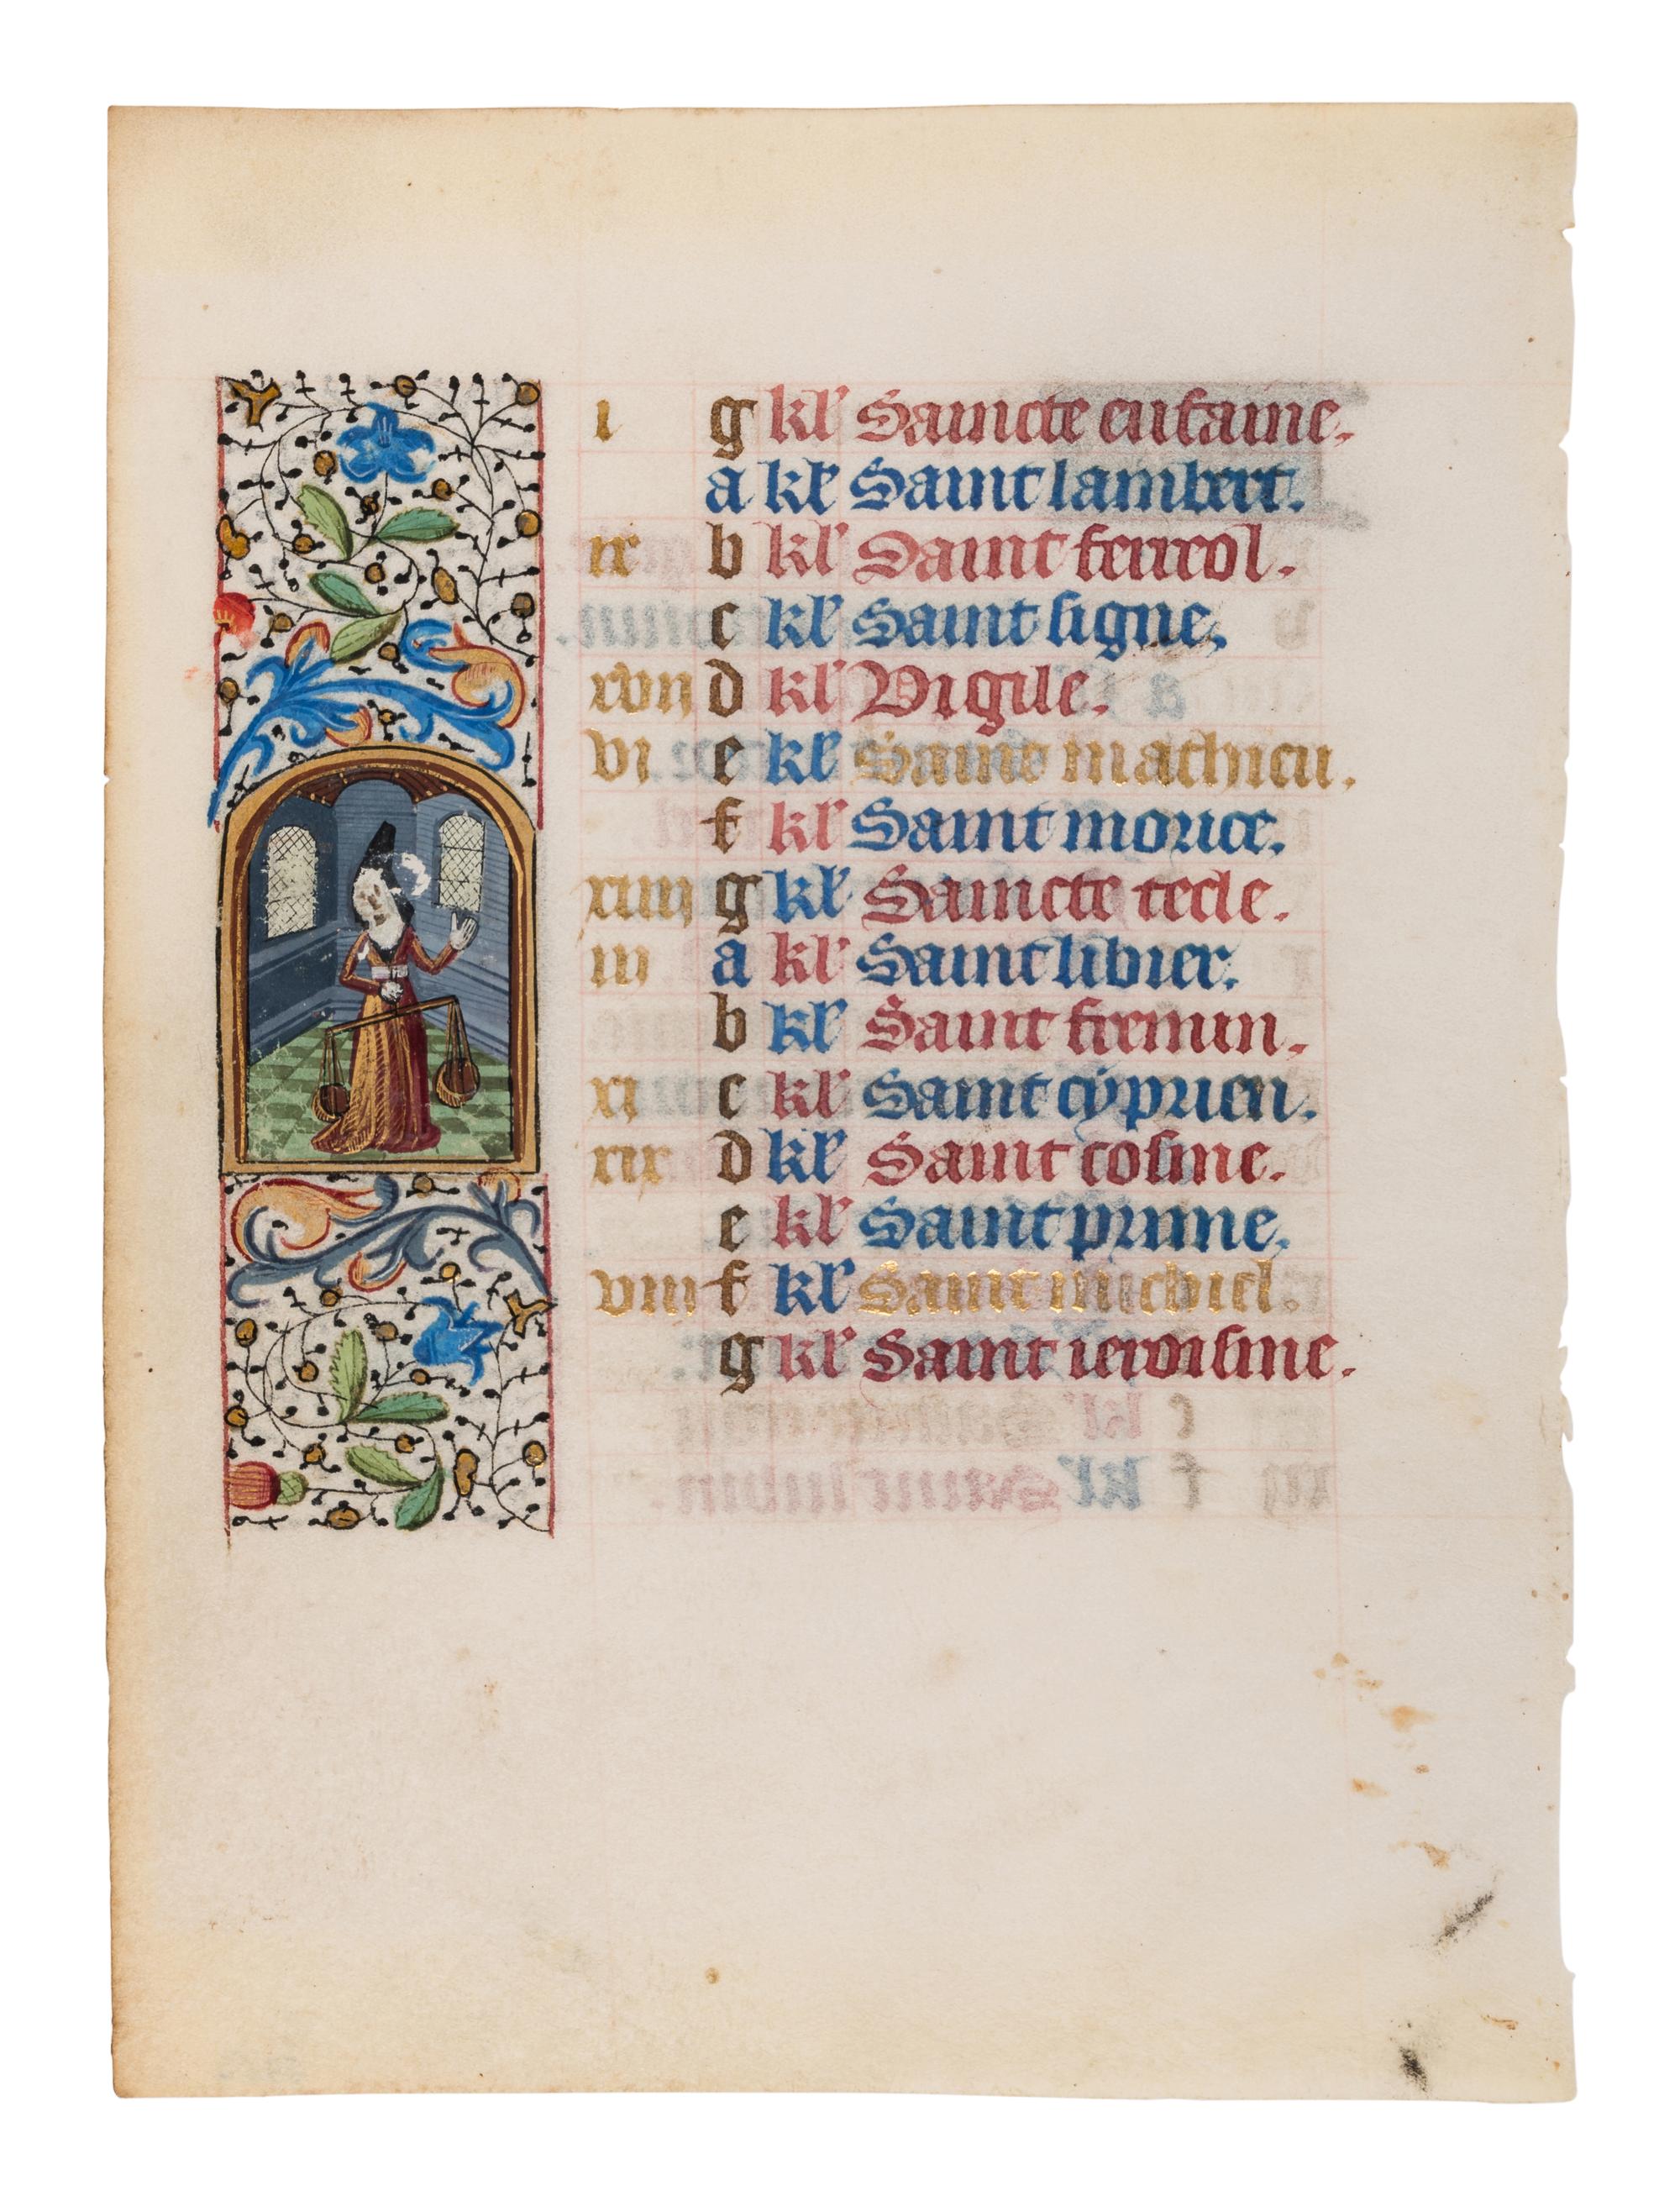 i g kl' Saincte eufame.
a kl' Saint lambert.
ix b kl' Saint ferreol.
c kl' Saint signe.
xvii d kl' Vigile.
vi e kl' Saint mathieu.
f kl' Saint morice.
xiiii g kl' Saincte tecle.
iii a kl' Saint libier.
b kl' Saint fremin.
xi c kl' Saint cyprien.
xix d kl' Saint cosme.
e kl' Saint prinne.
viii f kl' Saint michiel.
g kl' Saint ieroisme.